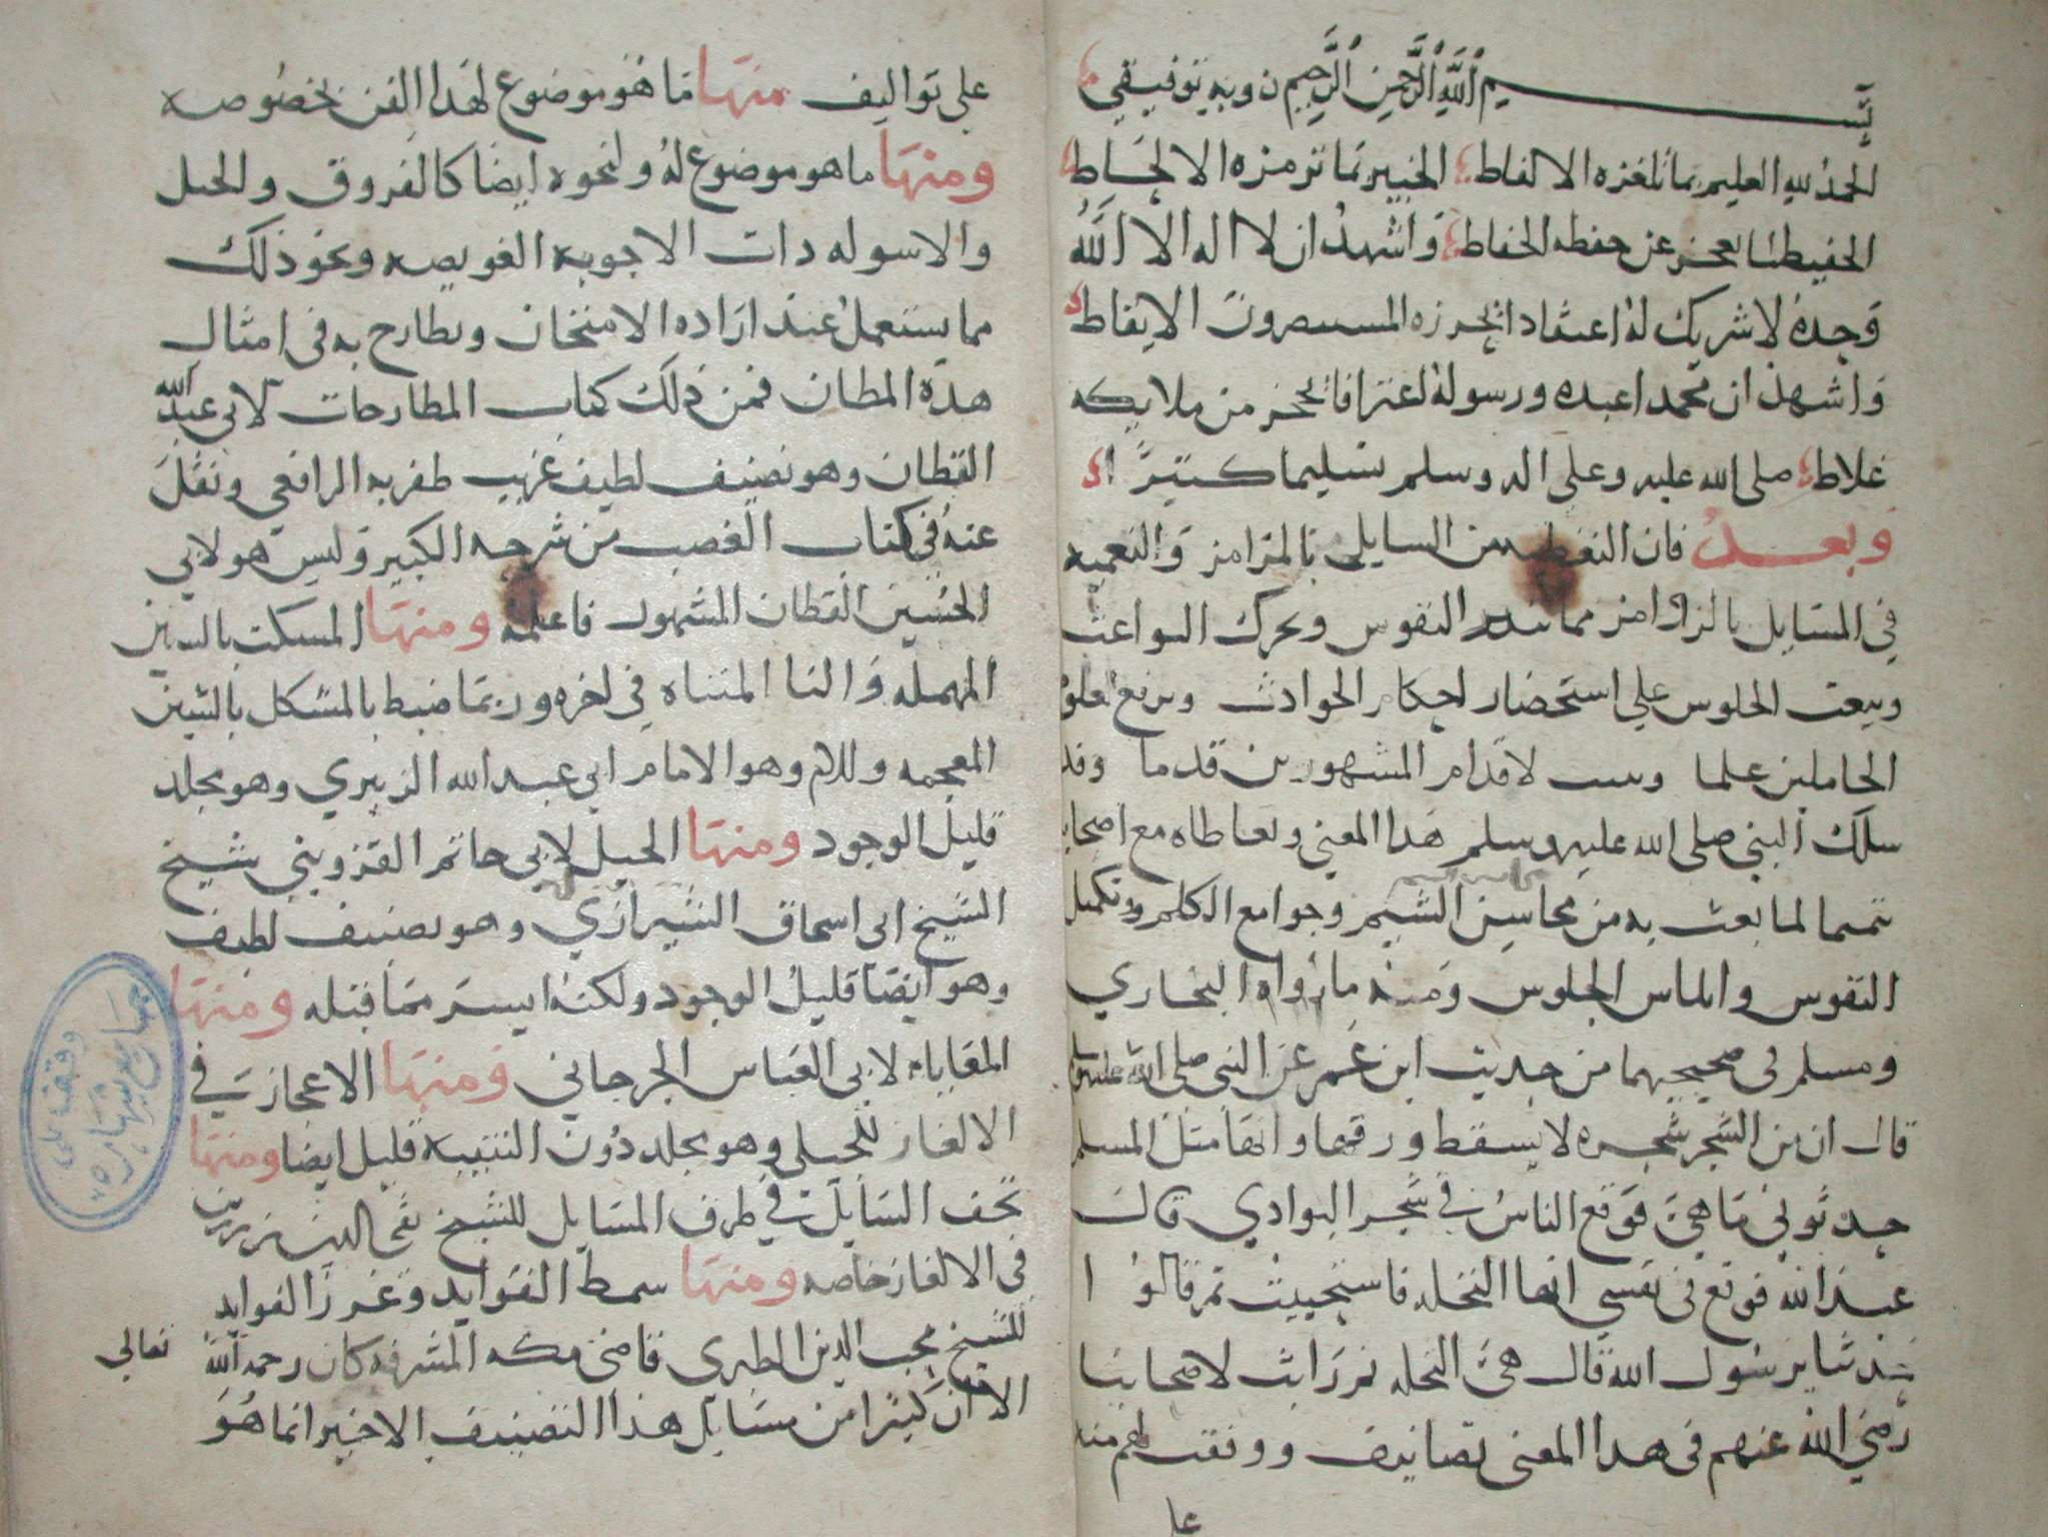 بسم الله الرحمن الرحيم ن وبه توفيقي
الحمد لله العليم بما تلغزه الالفاظ الخبير بما ترمزه الالحاظ
الحفيظ لما يعجز عن حفظه الحفاظ واشهد ان لا اله الا الله
وحده لا شريك له اعتقاد الايقاظ
واشهد ان محمدا عبده ورسوله اعترافا من ملايكه
غلاظ صلى الله عليه وعلى اله وسلم تسليما كثيرا
وبعد فان من السايل بالمرامز والتعميه
في المسايل بالزوامز مما النفوس ويحرك البواعث
ويبعث الجلوس على استحضار احكام الحوادث ويرفع
الحاملين علما لاقدام المشهورين قدما وقد
سلك النبي صلى الله عليه وسلم هذا المعني وتعاطاه مع اصحابه
تتميما لما بعث به من محاسن الشيم وجوامع الكلم وتكميل
النفوس والماس الجلوس ومنه ما رواه البخاري
ومسلم في صحيحيهما من حديث ابن عمر عن النبي صلى الله عليه وسلم
قال ان من الشجر شجره لا يسقط ورقها وانها مثل المسلم
حدثوني ما هي فوقع الناس في شجر البوادي قال
عبد الله فوقع في نفسي انها النخله فاستحييت ثم قالوا
حدثنا يرسول الله قال هي النخله ثم رايت لاصحابنا
رضي الله عنهم في هذا المعني تصانيف ووقفت لهم منه
علي
على تواليف منها ما هو موضوع لهذا الفن بخصوصه
ومنها ما هو موضوع له ولنحوه ايضا كالفروق والحيل
والاسوله ذات الاجوبه العويصه ونحو ذلك
مما يستعمل عند اراده الامتحان ويطارح به في امثال
هذه المظان فمن ذلك كتاب المطارحات لابي عبد الله
القطان وهو تصنيف لطيف غريب ظفر به الرافعي ونقل
عنه في كتاب الغصب من شرحه الكبير وليس هو لابي
الحسين القطان المشهور فاعلمه ومنها المسكت بالسين
المهمله والتا المثناه في اخره وربما ضبط بالمشكل بالشين
المعجمه واللام وهو الامام ابي عبد الله الزبيري وهو مجلد
قليل الوجود ومنها الحيل لابي حاتم القزويني شيخ
الشيخ ابي اسحاق الشيرازي وهو تصنيف لطيف
وهو ايضا قليل الوجود ولكنه ايسر مما قبله ومنها
المعاياه لابي العباس الجرجاني ومنها الاعجاز في
الالغاز للجيلي وهو مجلد دون التنبيه قليل ايضا ومنها
تحف السايل في طرف المسايل للشيخ تقي الدين بن رزين
في الالغاز خاصه ومنها سمط الفوايد وغرر الفوايد
للشيخ محب الدين الطبري قاضي مكه المشرفه كان رحمه الله تعالي
الا ان كثيرا من مسايل هذا التصنيف الاخير انما هو
وقف علي